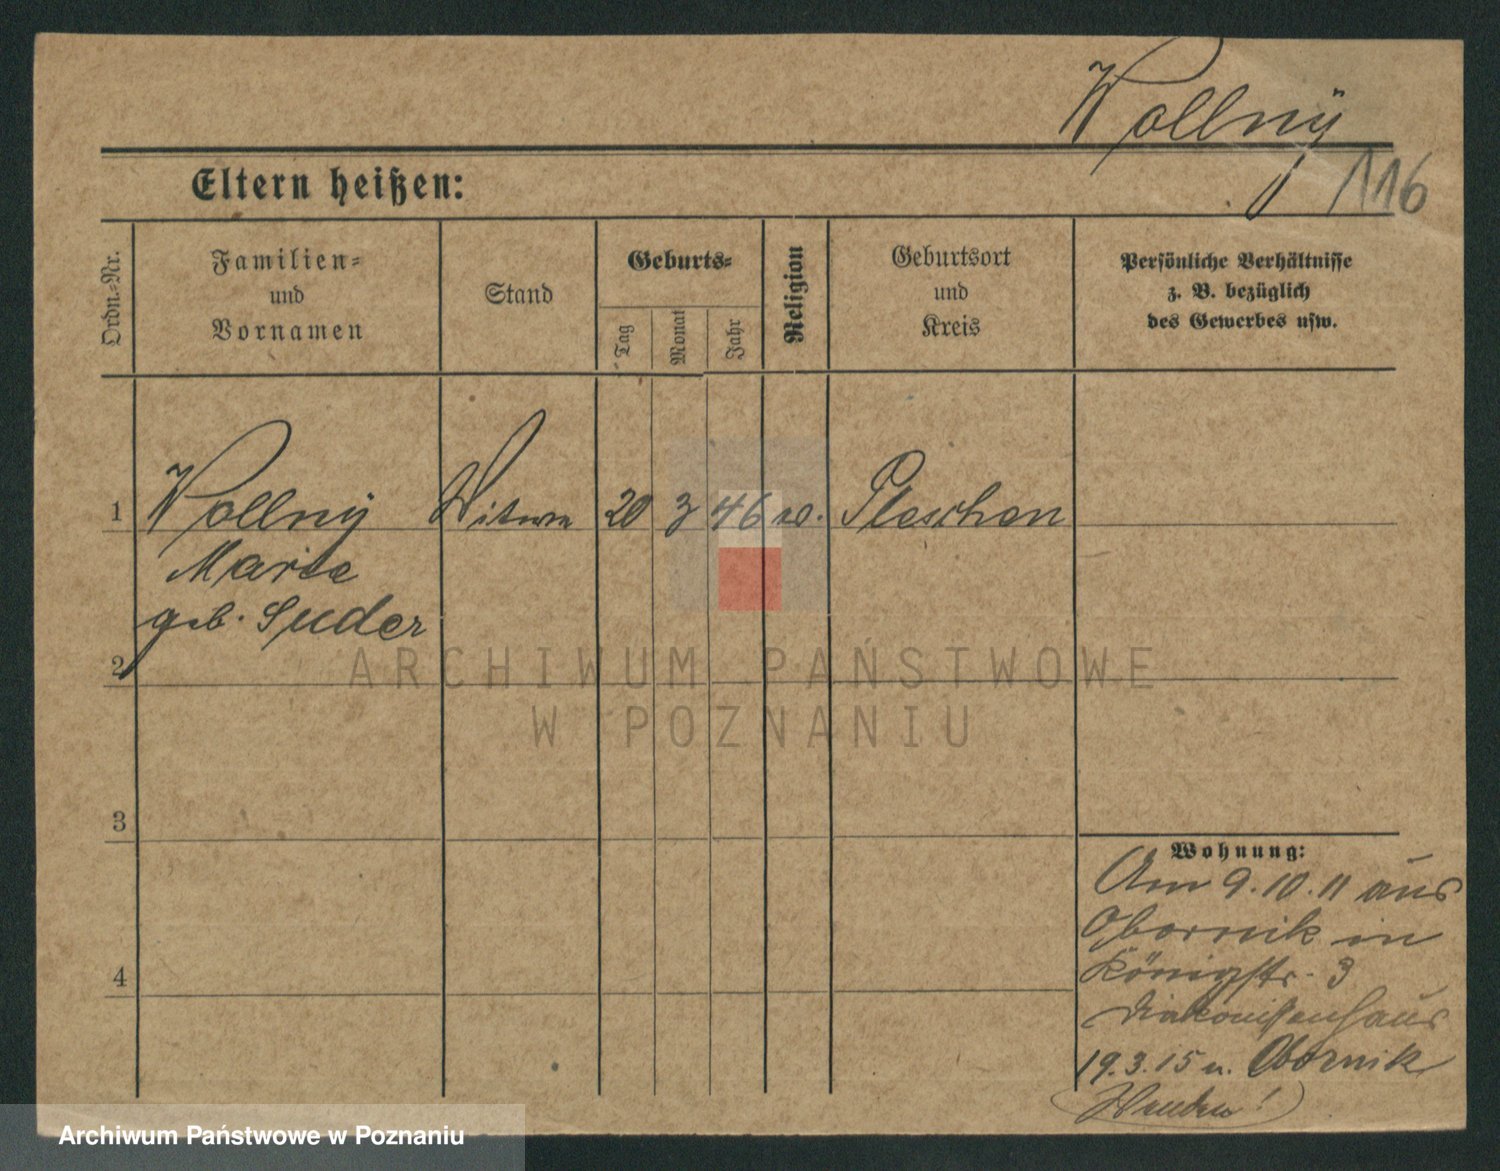 Wollnÿ
116
Eltern heißen:
Ordn.-Nr.
Familien-
und
Vornamen
Stand
Geburts-
Tag
Monat
Jahr
Religion
Geburtsort
und
Kreis
Persönliche Verhältnisse
z. B. bezüglich
des Gewerbes usw.
1
Wollnÿ Witwe 20 3 46 Pleschen
Marie
geb. Suder
2
3
4
Wohnung:
Am 9.10.11 aus
Obornik in
Königstr. 3
Diakonissenhaus
19.3.15 n. Obornik
Wenden!
ARCHIWUM PAŃSTWOWE
W POZNANIU
Archiwum Państwowe w Poznaniu